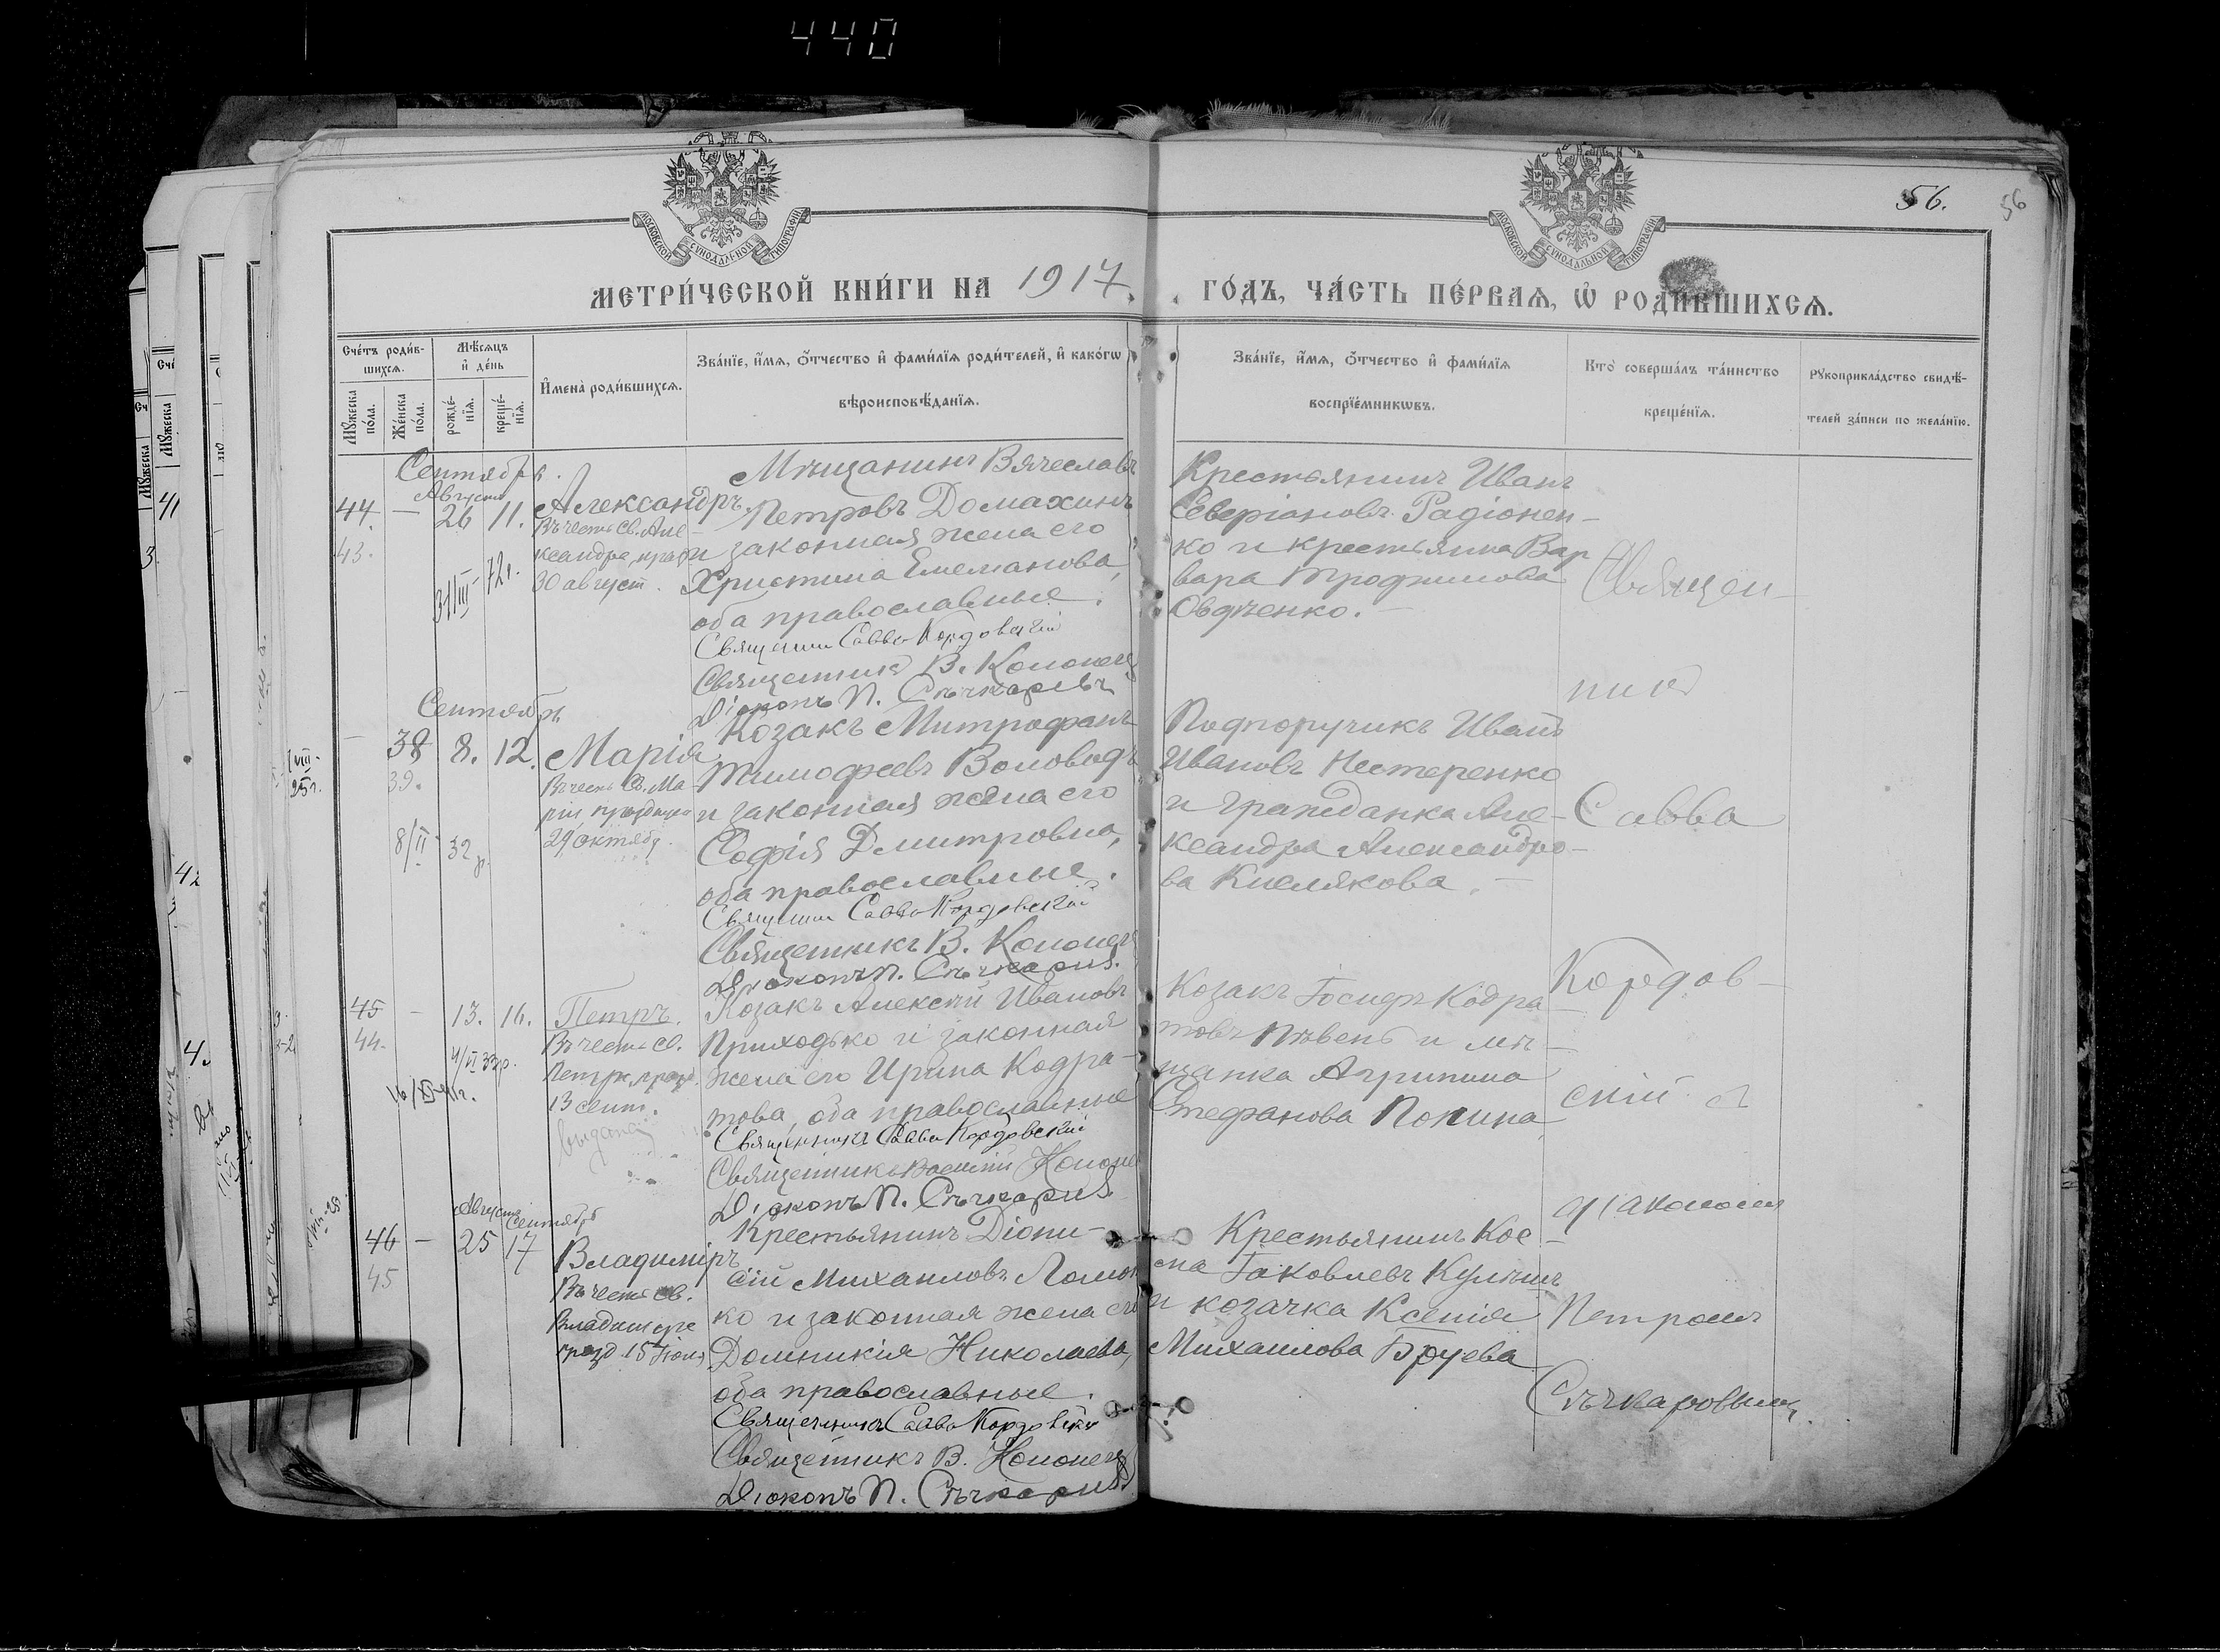 440
МОСКОВСКОЙ СѴНОДАЛЬНОЙ ТИПОГРАФІИ
МОСКОВСКОЙ СѴНОДАЛЬНОЙ ТИПОГРАФІИ
56.
56
МЕТРИ́ЧЕСКОЙ КНИ́ГИ НА 1917
ГО́ДЪ, ЧА́СТЬ ПЕ́РВАЯ, Ѡ РОДИ́ВШИХСЯ.
Сче́тъ роди́вшихся.
Мужеска по́ла.
Же́нска по́ла.
Мѣ́сяцъ и де́нь
рожде́нїя.
креще́нїя.
И҆мена̀ роди́вшихся.
Зва́нїе, и҆́мя, ѻ҆́тчество и҆ фами́лїя роди́телей, и҆ како́гѡ вѣроисповѣ́данїя.
Зва́нїе, и҆́мя, ѻ҆́тчество и҆ фами́лїя воспрїе́мникѡвъ.
Кто̀ соверша́лъ та́инство креще́нїя.
Рукоприкла́дство свидѣ́телей за́писи по жела́нїю.
Сентябрь.
Августа
44. — 26 11. Александръ.
43.
Въ честь Св. Але-
ксандра, празд
30 август.
Мѣщанинъ Вячеславъ
Петровъ Домахинъ
и законная жена его
Христина Емеманова,
оба православные.
Священник Савва Кордовскій
Священникъ В. Кононец
Діаконъ П. Сѣчкаревъ
Крестьянинъ Иванъ
Северіановъ Радіонен-
ко и крестьянка Вар
вара Трофимова
Овдѣенко. —
Сентябрь
— 38 8. 12. Марія
39.
Въ честь Св. Ма-
ріи, празднуем
29 октябр.
8/II 32 г.
Козакъ Митрофанъ
Тимофеевъ Воловодъ
и законная жена его
Софія Дмитровна,
оба православные.
Священник Савва Кордовскій
Священникъ В. Кононец
Діаконъ П. Сѣчкарив.
Подпоручикъ Иванъ
Ивановъ Нестеренко
и гражданка Але-
ксандра Александро-
ва Кислякова. —
45 — 13. 16. Петръ.
44.
Въ честь Св.
Петра, празд.
13 сент.
4/VI 33 г.
Козакъ Алексѣй Ивановъ
Приходько и законная
жена его Ирина Кодра-
това, оба православные
Священникъ Савва Кордовскій
Священникъ Василій Кононе
Діаконъ П. Сѣчкарив.
Козакъ Іосифъ Кодра
товъ Пивень и мѣ-
щанка Агрипина
Стефанова Попина
Августа Сентябр
46 — 25 17 Владиміръ
45
Въ честь Св.
Владимира
празд. 15 Іюля
Крестьянинъ Діони-
сій Михаиловъ Ломон
ко и законная жена его
Домникія Николаева,
оба православные.
Священникъ Савва Кордовскій
Священникъ В. Кононец
Діаконъ П. Сѣчкарив.
Крестьянинъ Кос-
ма Іаковлевъ Кулиш
и козачка Ксенія
Михаилова Бруева
Священ-
ник
Савва
Кордов-
скій с
діакономъ
Петромъ
Сѣчкаровымъ.